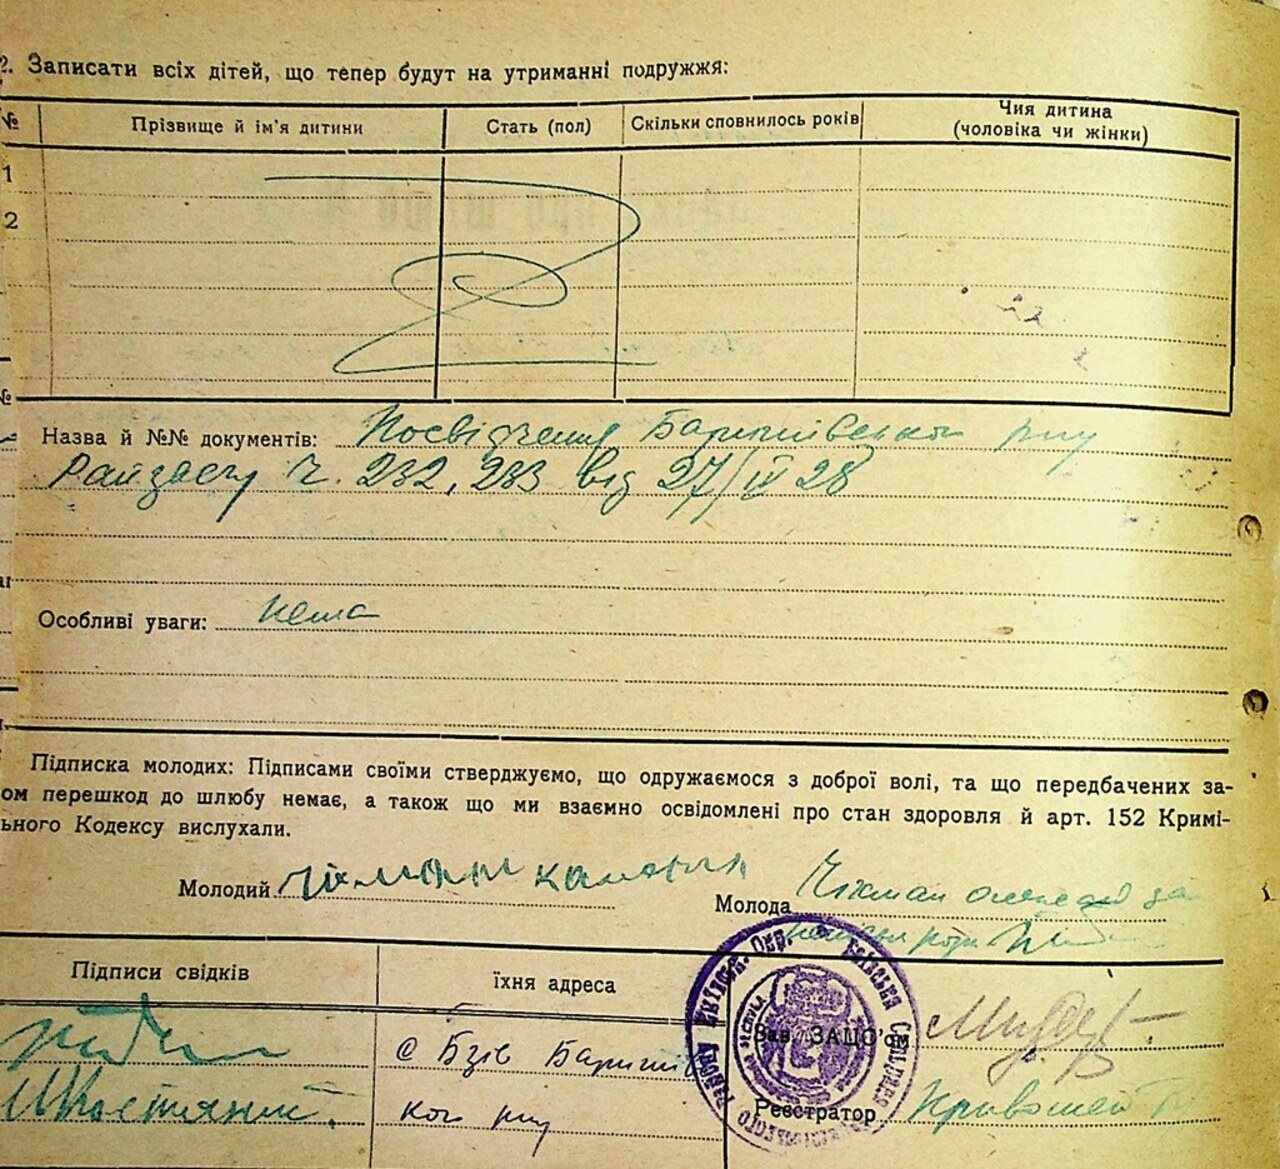 2. Записати всіх дітей, що тепер будут на утриманні подружжя:
№ Прізвище й ім'я дитини Стать (пол) Скільки сповнилось років Чия дитина
(чоловіка чи жінки)
1
2
Назва й №№ документів: Посвідчення Баришівського р-ну
Райзагсу ч. 232, 233 від 27/IV 28
Особливі уваги: Нема
Підписка молодих: Підписами своїми стверджуємо, що одружаємося з доброї волі, та що передбачених за-
ом перешкод до шлюбу немає, а також що ми взаємно освідомлені про стан здоровля й арт. 152 Кримі-
ьного Кодексу вислухали.
Молодий Молода
Підписи свідків їхня адреса
с Бзів Баришів
кого р-ну
Зав. ЗАЦС'ом
Реєстратор